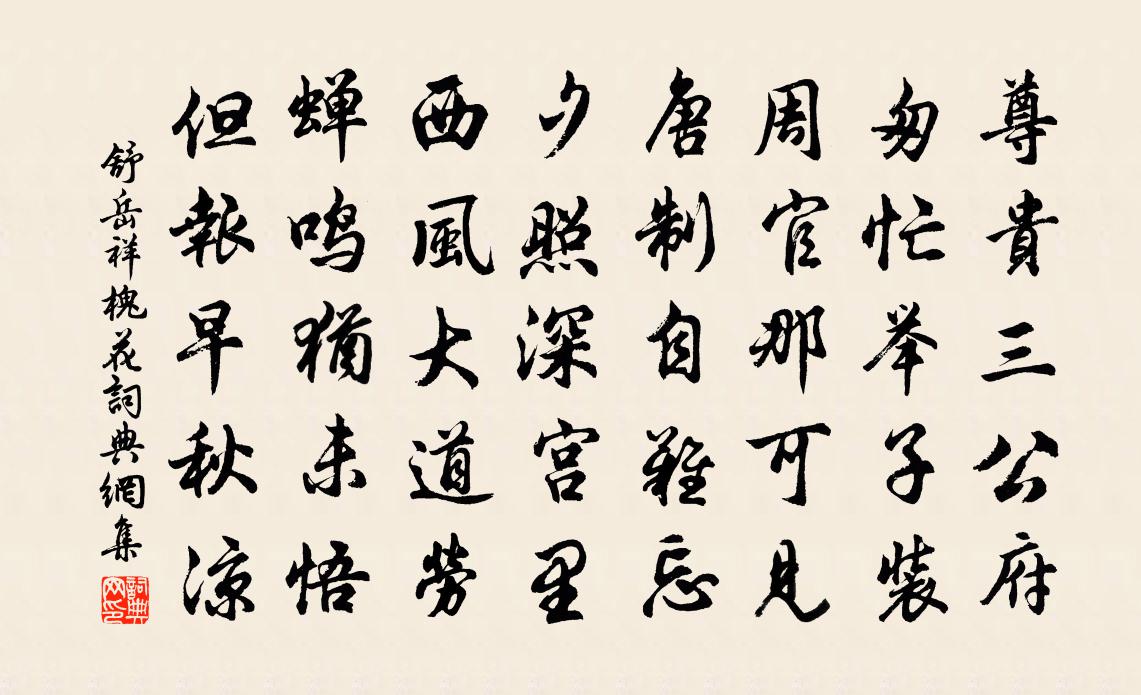 尊貴三公府
匆忙举子装
周官那可見
唐制自難忘
夕照深宫里
西風大道勞
蝉鸣猶未悟
但報早秋凉
舒岳祥槐花詞典網集
詞典網印